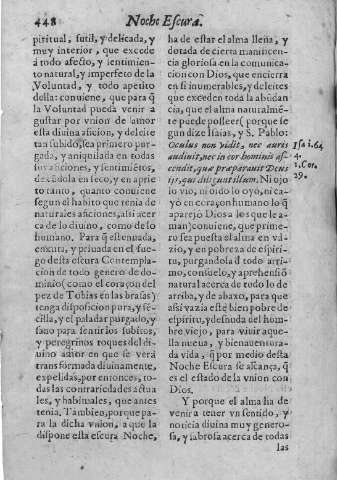 448
Noche Escura.
piritual, sutil, y delicada, y
muy interior, que excede
á todo afecto, y sentimiento
natural, y imperfeto de la
Voluntad, y todo apetito
della: conuiene, que para q̃
la Voluntad pueda venir a
gustar por vnion de amor
esta diuina aficion, y deleite
tan subido, sea primero purgada,
y aniquilada en todas
sus aficiones, y sentimiẽtos,
dexãdola en seco, y en aprieto
tanto, quanto conuiene
segun el habito que tenia de
naturales aficiones, assi acerca
de lo diuino, como de lo
humano. Para q̃ estenuada,
enxuta, y priuada en el fuego
desta escura Contemplacion
de todo genero de dominio
(como el coraçon del
pez de Tobias en las brasas)
tenga disposicion pura, y sẽcilla,
y el paladar purgado, y
sano para sentir los subitos,
y peregrinos toques del diuino
amor en que se verá
transformada diuinamente,
expelidas, por entonces, todas
las contrariedades actuales,
y habituales, que antes
tenia. Tambien, porque para
la dicha vnion, a que la
dispone esta escura Noche,
ha de estar el alma llena, y
dotada de cierta manificencia
gloriosa en la comunicacion
con Dios, que encierra
en si inumerables, y deleites
que exceden toda la abũdãcia,
que el alma naturalmẽte
puede posseer (porque segun
dize Isaias, y S. Pablo:
Oculus non vidit, nec auris
audiuit, nec in cor hominis ascendit,
quæ præparauit Deus
ijs, qui diligunt illum. Ni ojo
lo vio, ni oido lo oyó, ni cayó
en coraçon humano lo q̃
aparejó Dios a los que le aman)
conuiene, que primero
sea puesta el alma en vazio,
y en pobreza de espiritu,
purgandola de todo arrimo,
consuelo, y aprehensiõ
natural acerca de todo lo de
arriba, y de abaxo, para que
assi vazia esté bien pobre de
espiritu, y desnuda del hombre
viejo, para viuir aquella
nueua, y bienauenturada
vida, q̃ por medio desta
Noche Escura se alcança, q̃
es el estado de la vnion con
Dios.
Y porque el alma ha de
venir a tener vn sentido, y
noticia diuina muy generosa,
y sabrosa acerca de todas
las
Isai. 64
4.
1. Cor.